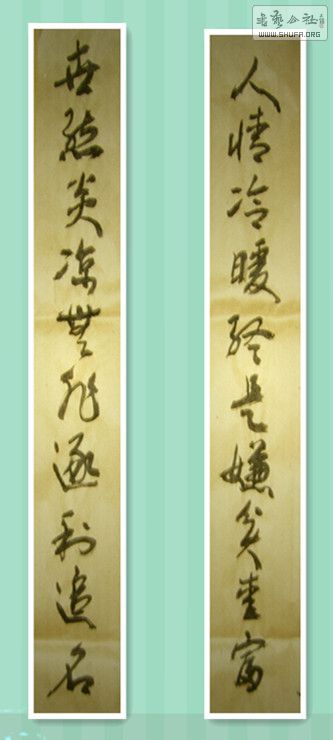 人情冷暖終是嫌貧重富
世態炎凉無非逐利追名
書藝公社
WWW.SHUFA.ORG